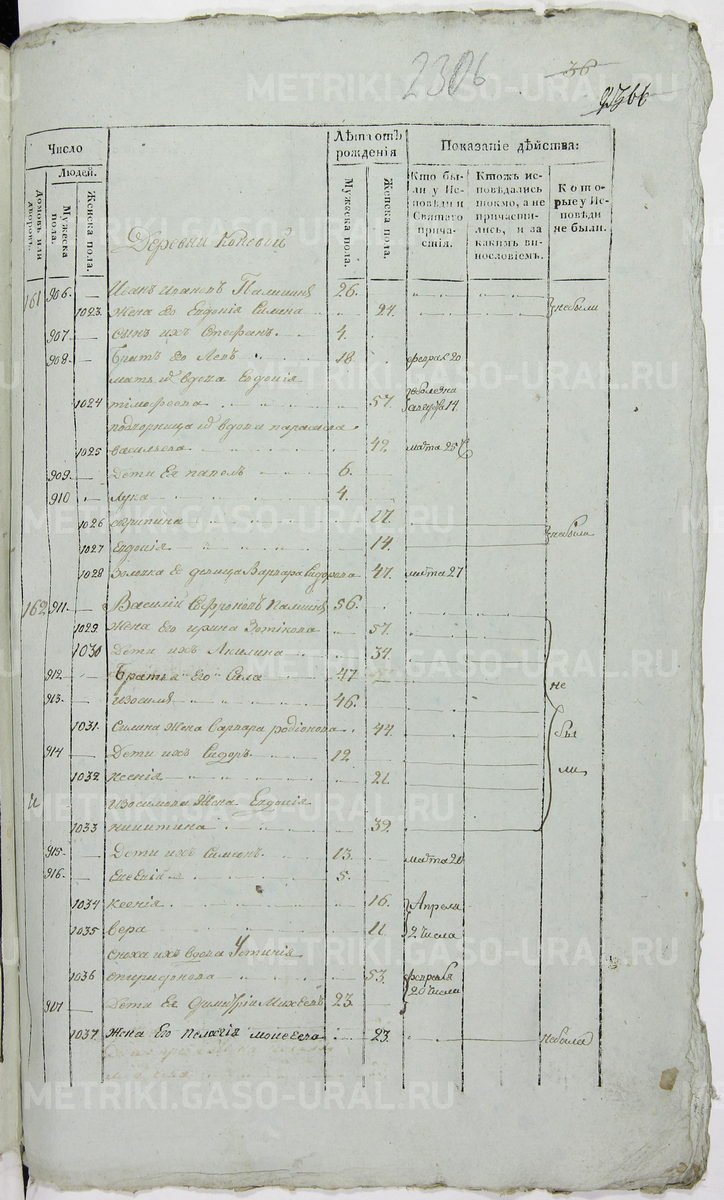 2306
36
Число
Людей.
Домовъ или дворовъ.
Мужеска пола.
Женска пола.
Лѣта отъ рожденія
Мужеска пола.
Женска пола.
Показаніе дѣйства:
Кто были у Исповѣди и Святаго причастія.
Ктожъ исповѣдались токмо, а не причастились, и за какимъ винословіемъ.
Которые у Исповѣди не были.
Деревни Коневой
161 906. Иванъ Ивановъ Палицинъ 26.
1023. Жена его Евдокія Силина 24. небыли
907 Сынъ ихъ Стефанъ 4.
908. Братъ его Левъ 18. феврал 20
мать их вдова Евдокія
1024 тимофеева 57. 14
подворница их вдова параскева
1025 васильева 42. марта 25
909. Дети Ея павелъ 6.
910 лука 4.
1026 17.
1027 Евдокія 14. небыли
1028 Золовка Ея девица Варвара Сидорова 47. марта 27
162 911. Василий Софроновъ Палицинъ 56.
1029. Жена Его ирина Зотикова 57.
1030 Дети ихъ Акилина 34.
912 Братья Его Сила 47
913. изосимъ 46.
не
1031. Силина жена варвара родіонова 44.
были
914 Дети ихъ Сидоръ 12.
1032 ксенія 21.
изосимова жена Евдокія
1033 никитина 39.
915. Дети ихъ Симеонъ 13. марта 20
916. Евсевій 5.
1034 ксенія 16. Апреля
1035 вера 11 2 числа
сноха ихъ вдова Устинія
1036 спиридонова 53. февраля 20 числа
917 Дети Ея Димитрій Михеевъ 23.
1037 Жена Его Пелагія моисеева 23. небыла
METRIKI.GASO-URAL.RU